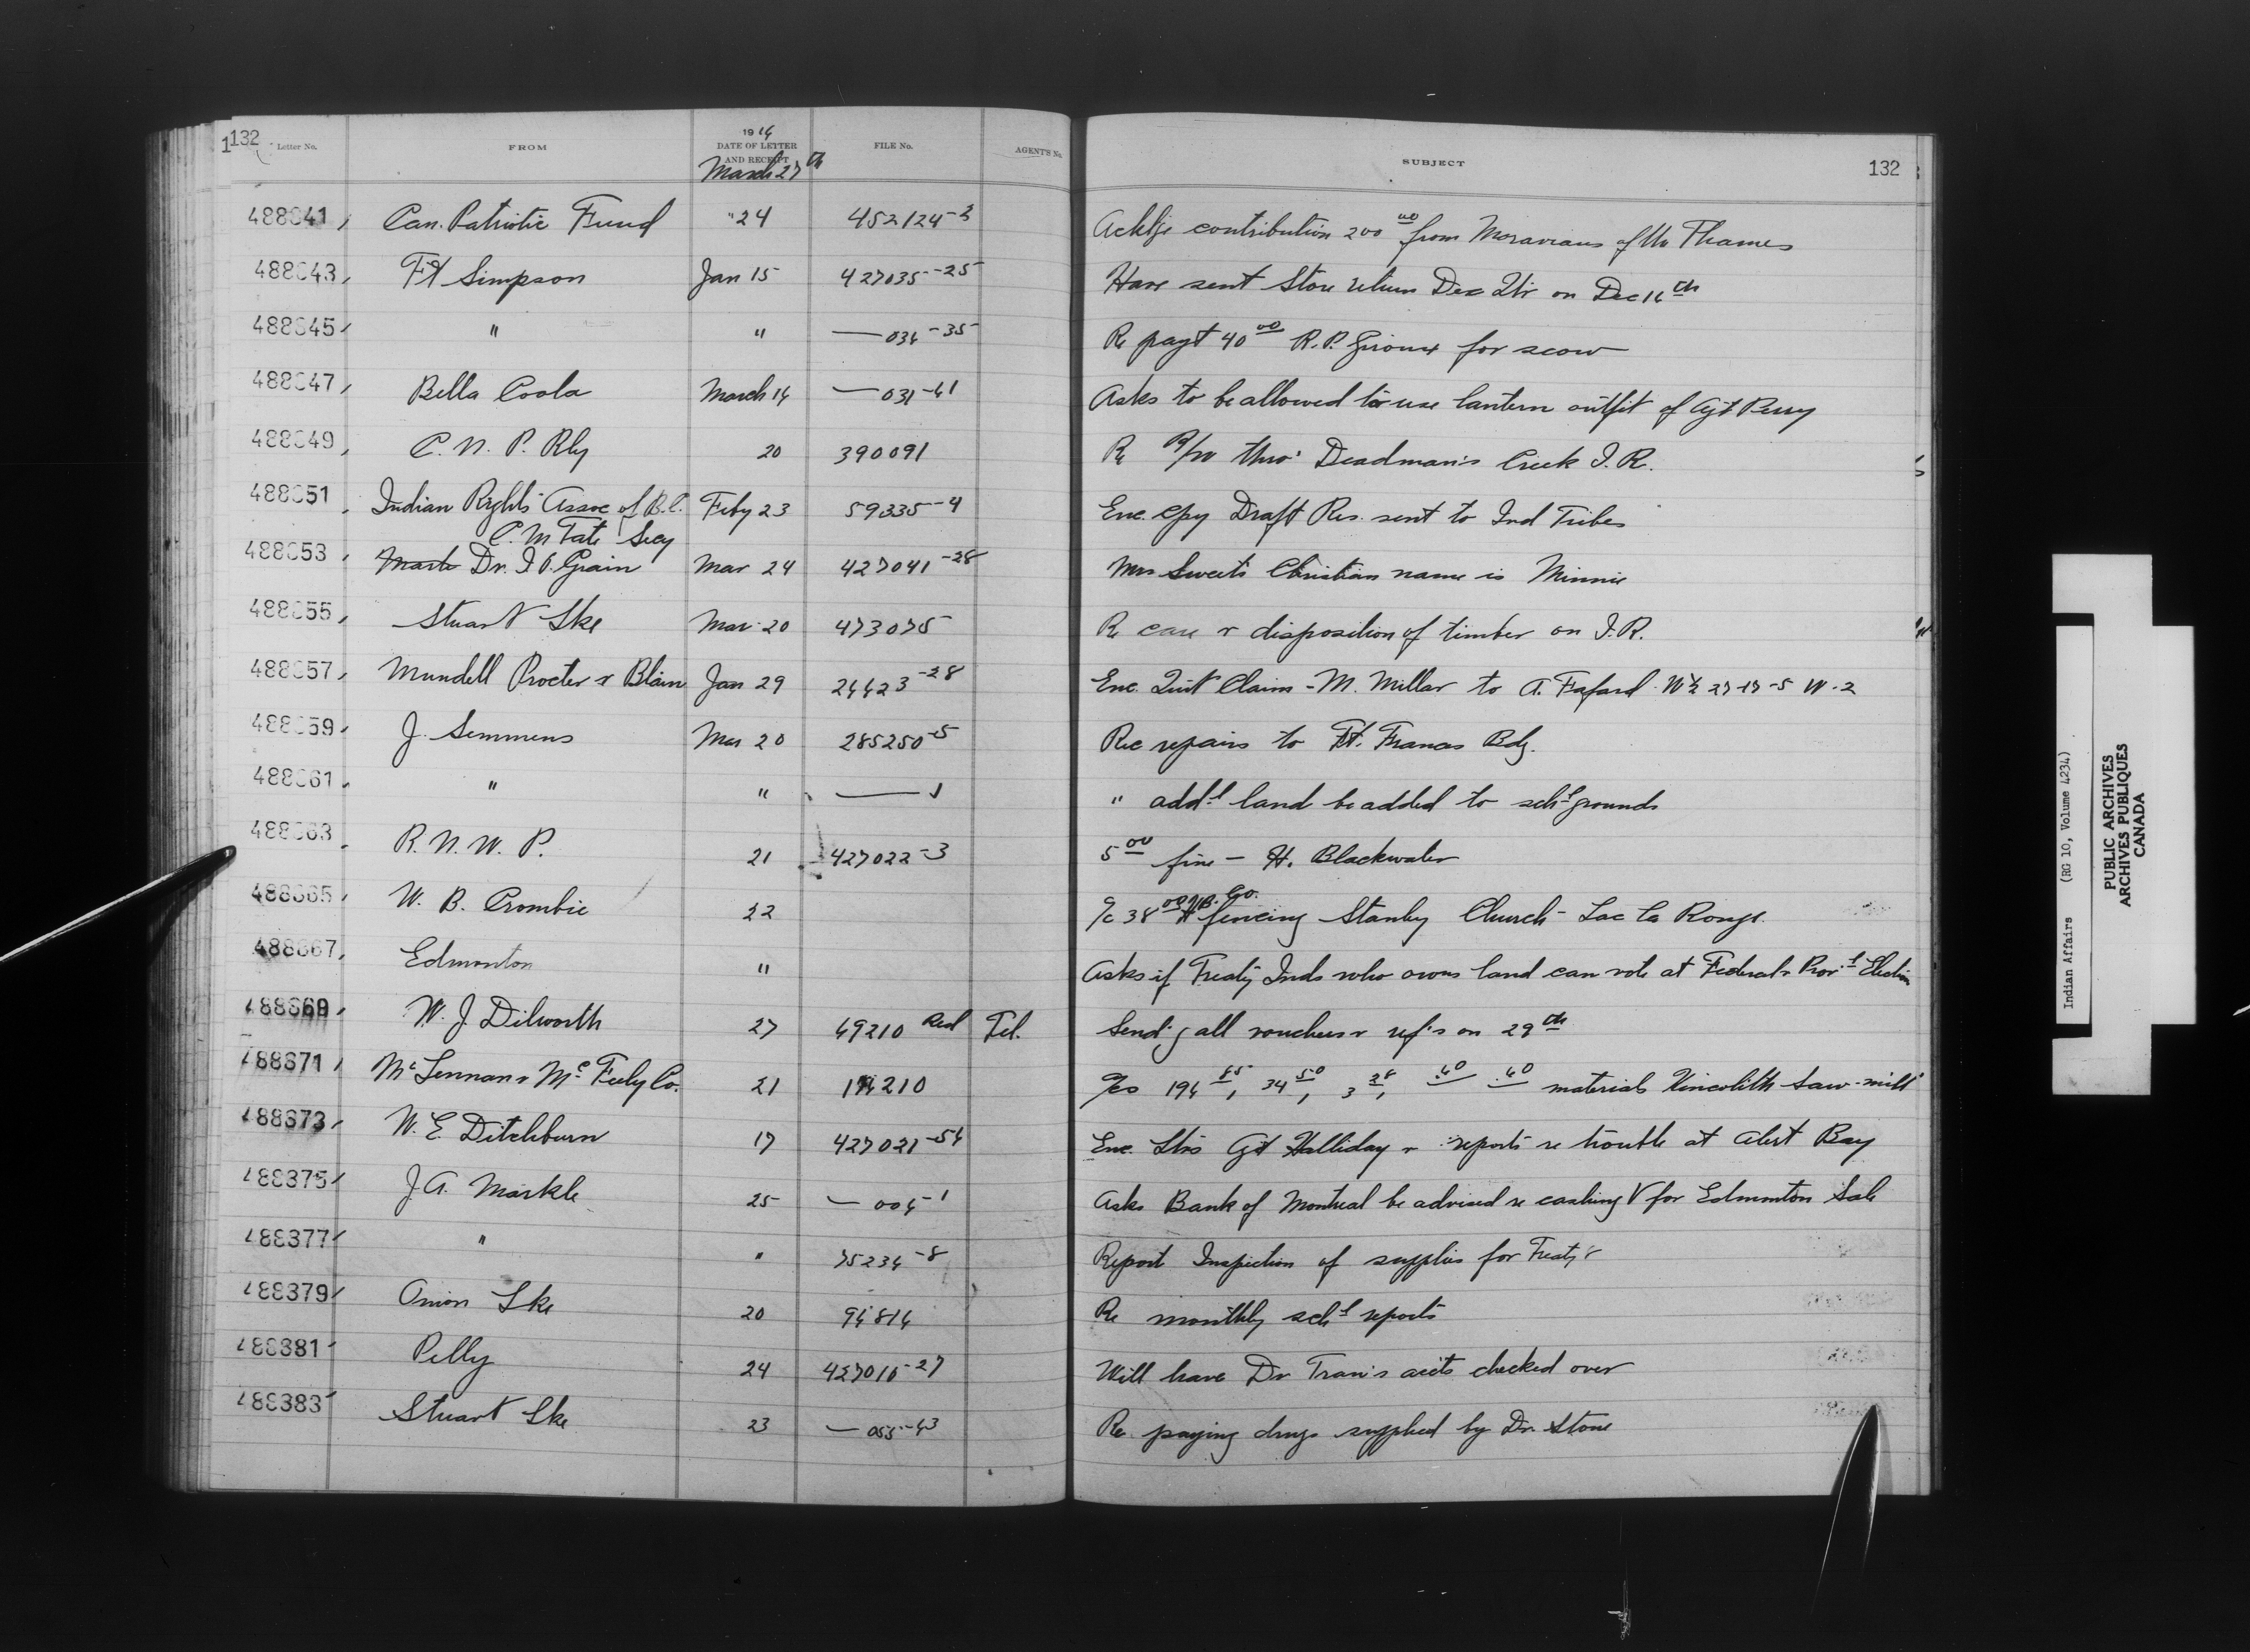 132 Letter No. FROM 1914 DATE OF LETTER AND RECEIPT FILE No. AGENT'S No. SUBJECT 132
March 27th
488641 Can. Patriotic Fund " 24 452124-2 Acklge contribution 200 00 from Moravians of the Thames
488643 Ft Simpson Jan 15 427035-25 Have sent Store return Dec Qtr on Dec 16th
488645 " " — 034-35 Re payt 40 00 R.P. Giroux for scow
488647 Bella Coola March 14 — 031-41 Asks to be allowed to use lantern outfit of Agt Perry
488649 C. N. P. Rly 20 390091 Re R/W thro' Deadman's Creek I.R.
488651 Indian Rights Assoc of B.C. Feby 23 59335-4 Enc. cpy Draft Res. sent to Ind Tribes
C. M Tate Secy
488653 Dr. I.O. Grain Mar 24 427041-28 Mrs Sweet's Christian name is Minnie
488655 Stuart Lke Mar 20 473075 Re care & disposition of timber on I.R.
488657 Mundell Procter & Blain Jan 29 24423-28 Enc. Quit Claim - M. Millar to A. Fafard W½ 27-17-5 W-2
488659 J. Semmens Mar 20 285250-5 Rec repairs to Ft. Frances Bdg.
488661 " " — 1 " addl land be added to schl grounds
488663 R. N. W. P. 21 427022-3 5 00 fine - H. Blackwater
488665 W. B. Crombie 22 a/c 38 00 H.B. Co. fencing Stanley Church - Lac La Ronge
488667 Edmonton " Asks if Treaty Inds who owns land can vote at Federal & Provl Election
488669 W. J. Dilworth 27 49210 Red Tel. Send'g all vouchers & ref's on 29th
488671 McLennan & McFeely Co. 21 194210 a/cs 194 85, 34 50, 3 28, .40 .40 material Kincolith Saw-mill
488673 W. E. Ditchburn 17 427021-54 Enc. Ltrs Agt Halliday & reports re trouble at Alert Bay
488675 J. A. Markle 25 — 004-1 Asks Bank of Montreal be advised re cashing V for Edmonton Sale
488677 " " 75234-8 Report Inspection of supplies for Treaty
488679 Onion Lke 20 94814 Re monthly schl reports
488681 Pelly 24 427016-27 Will have Dr Tran's accts checked over
488683 Stuart Lke 23 — 055-43 Re paying drugs supplied by Dr. Stone
Indian Affairs (RG 10, Volume 4234)
PUBLIC ARCHIVES
ARCHIVES PUBLIQUES
CANADA